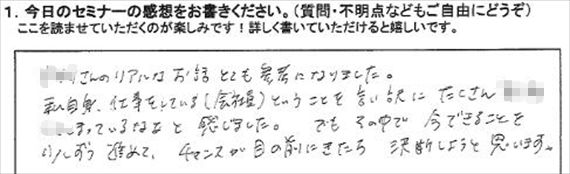 1. 今日のセミナーの感想をお書きください。(質問・不明点などもご自由にどうぞ)
ここを読ませていただくのが楽しみです!詳しく書いていただけると嬉しいです。
さんのリアルなお話とても参考になりました。
私自身、仕事をしている(会社員)ということを言い訳にたくさん
まっているなあと感じました。でもその中で今できることを
少しずつ進めて、チャンスが目の前にきたら決断しようと思います。